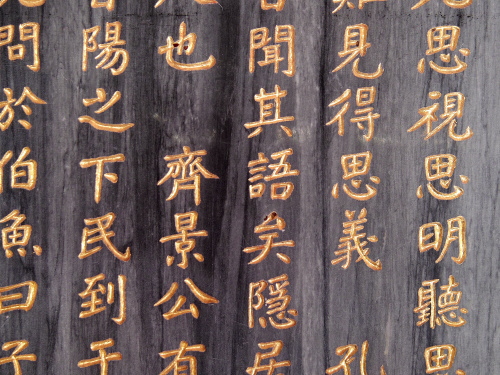 思視思明聽思
見得思義 孔
聞其語矣隱居
也 齊景公有
陽之下民到于
問於伯魚曰子